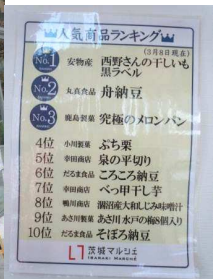 人気商品ランキング
(3月8日現在)
No.1 安物産 西野さんの干しいも
黒ラベル
No.2 丸真食品 舟納豆
No.3 鹿島製菓 究極のメロンパン
4位 小川製菓 ぷち栗
5位 幸田商店 泉の平切り
6位 だるま食品 ころころ納豆
7位 幸田商店 べっ甲干し芋
8位 鴨川商店 涸沼産大和しじみ味噌汁
9位 あさ川製菓 あさ川 水戸の梅8個入り
10位 だるま食品 そぼろ納豆
茨城マルシェ
IBARAKI MARCHÉ